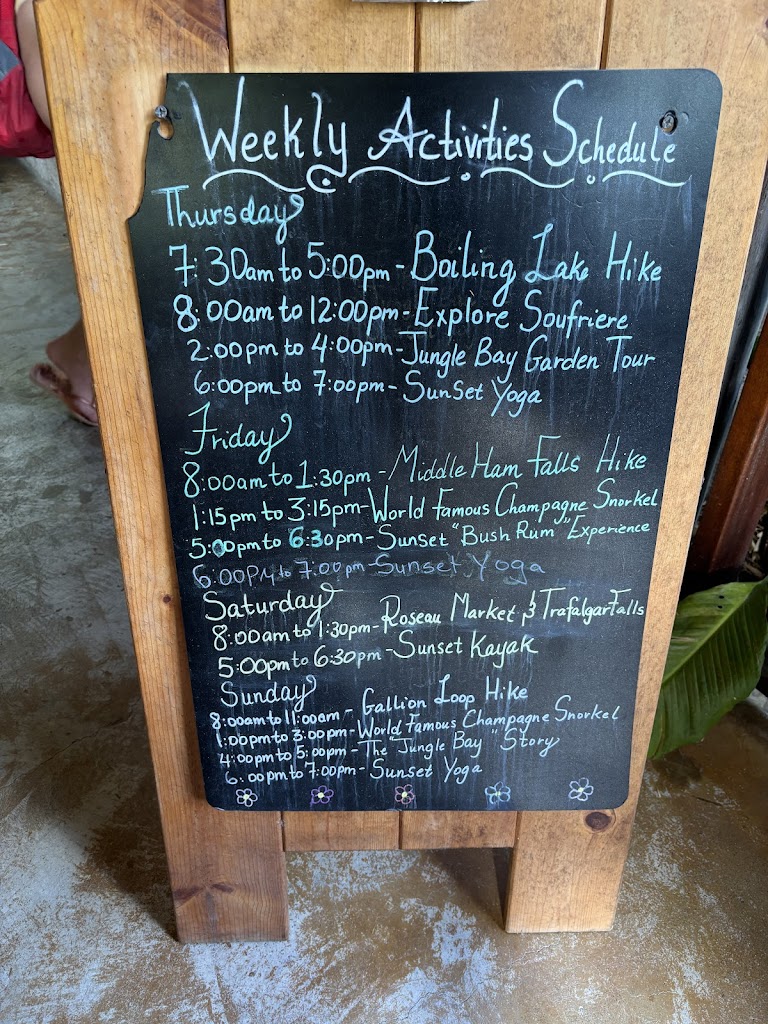 Weekly Activities Schedule
Thursday
7:30am to 5:00pm - Boiling Lake Hike
8:00am to 12:00pm - Explore Soufriere
2:00pm to 4:00pm - Jungle Bay Garden Tour
6:00pm to 7:00pm - Sunset Yoga
Friday
8:00am to 1:30pm - Middle Ham Falls Hike
1:15pm to 3:15pm - World Famous Champagne Snorkel
5:00pm to 6:30pm - Sunset "Bush Rum" Experience
6:00pm to 7:00pm - Sunset Yoga
Saturday
8:00am to 1:30pm - Roseau Market & Trafalgar Falls
5:00pm to 6:30pm - Sunset Kayak
Sunday
8:00am to 11:00am - Gallion Loop Hike
1:00pm to 3:00pm - World Famous Champagne Snorkel
4:00pm to 5:00pm - The "Jungle Bay" Story
6:00pm to 7:00pm - Sunset Yoga